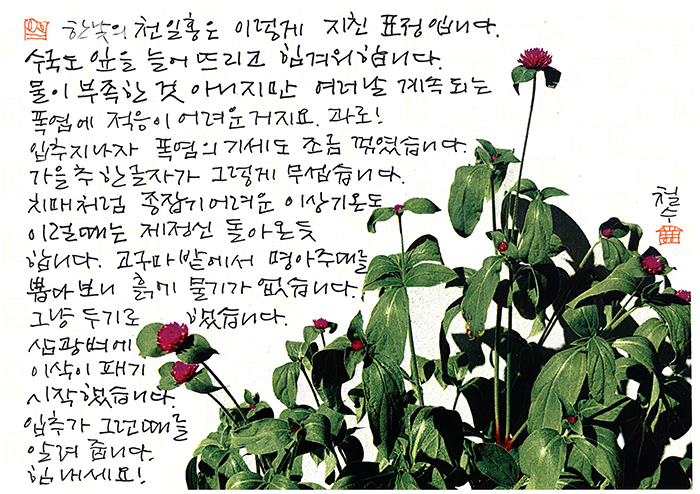 한낮의 천일홍은 이렇게 지친 표정입니다.
수국도 잎을 늘어뜨리고 힘겨워합니다.
물이 부족한 것 아니지만 여러날 계속되는
폭염에 적응이 어려운거지요. 과로!
입추지나자 폭염의 기세도 조금 꺾였습니다.
가을 추 한글자가 그렇게 무섭습니다.
치매처럼 종잡기어려운 이상기온도
이럴때는 제정신 돌아온듯
합니다. 고구마밭에서 명아주대를
뽑아보니 흙에 물기가 없습니다.
그냥 두기로 했습니다.
삼광벼에
이삭이 패기
시작했습니다.
입추가 그런때를
알려 줍니다.
힘내세요!
철수